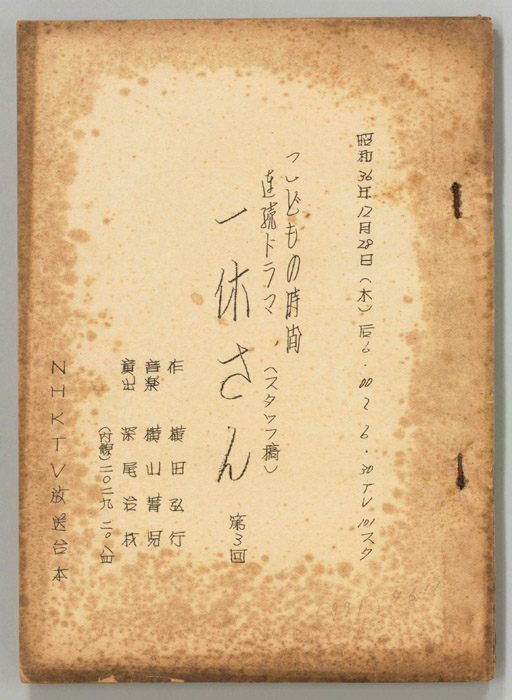 昭和36年12月28日(木)后6.00〜6.30 TV 101スタ
こどもの時間
連続ドラマ
(スタッフ稿)
一休さん
第3回
作 横田弘行
音楽 横山菁児
演出 深尾治枝
(内線)二〇二九
NHKTV放送台本